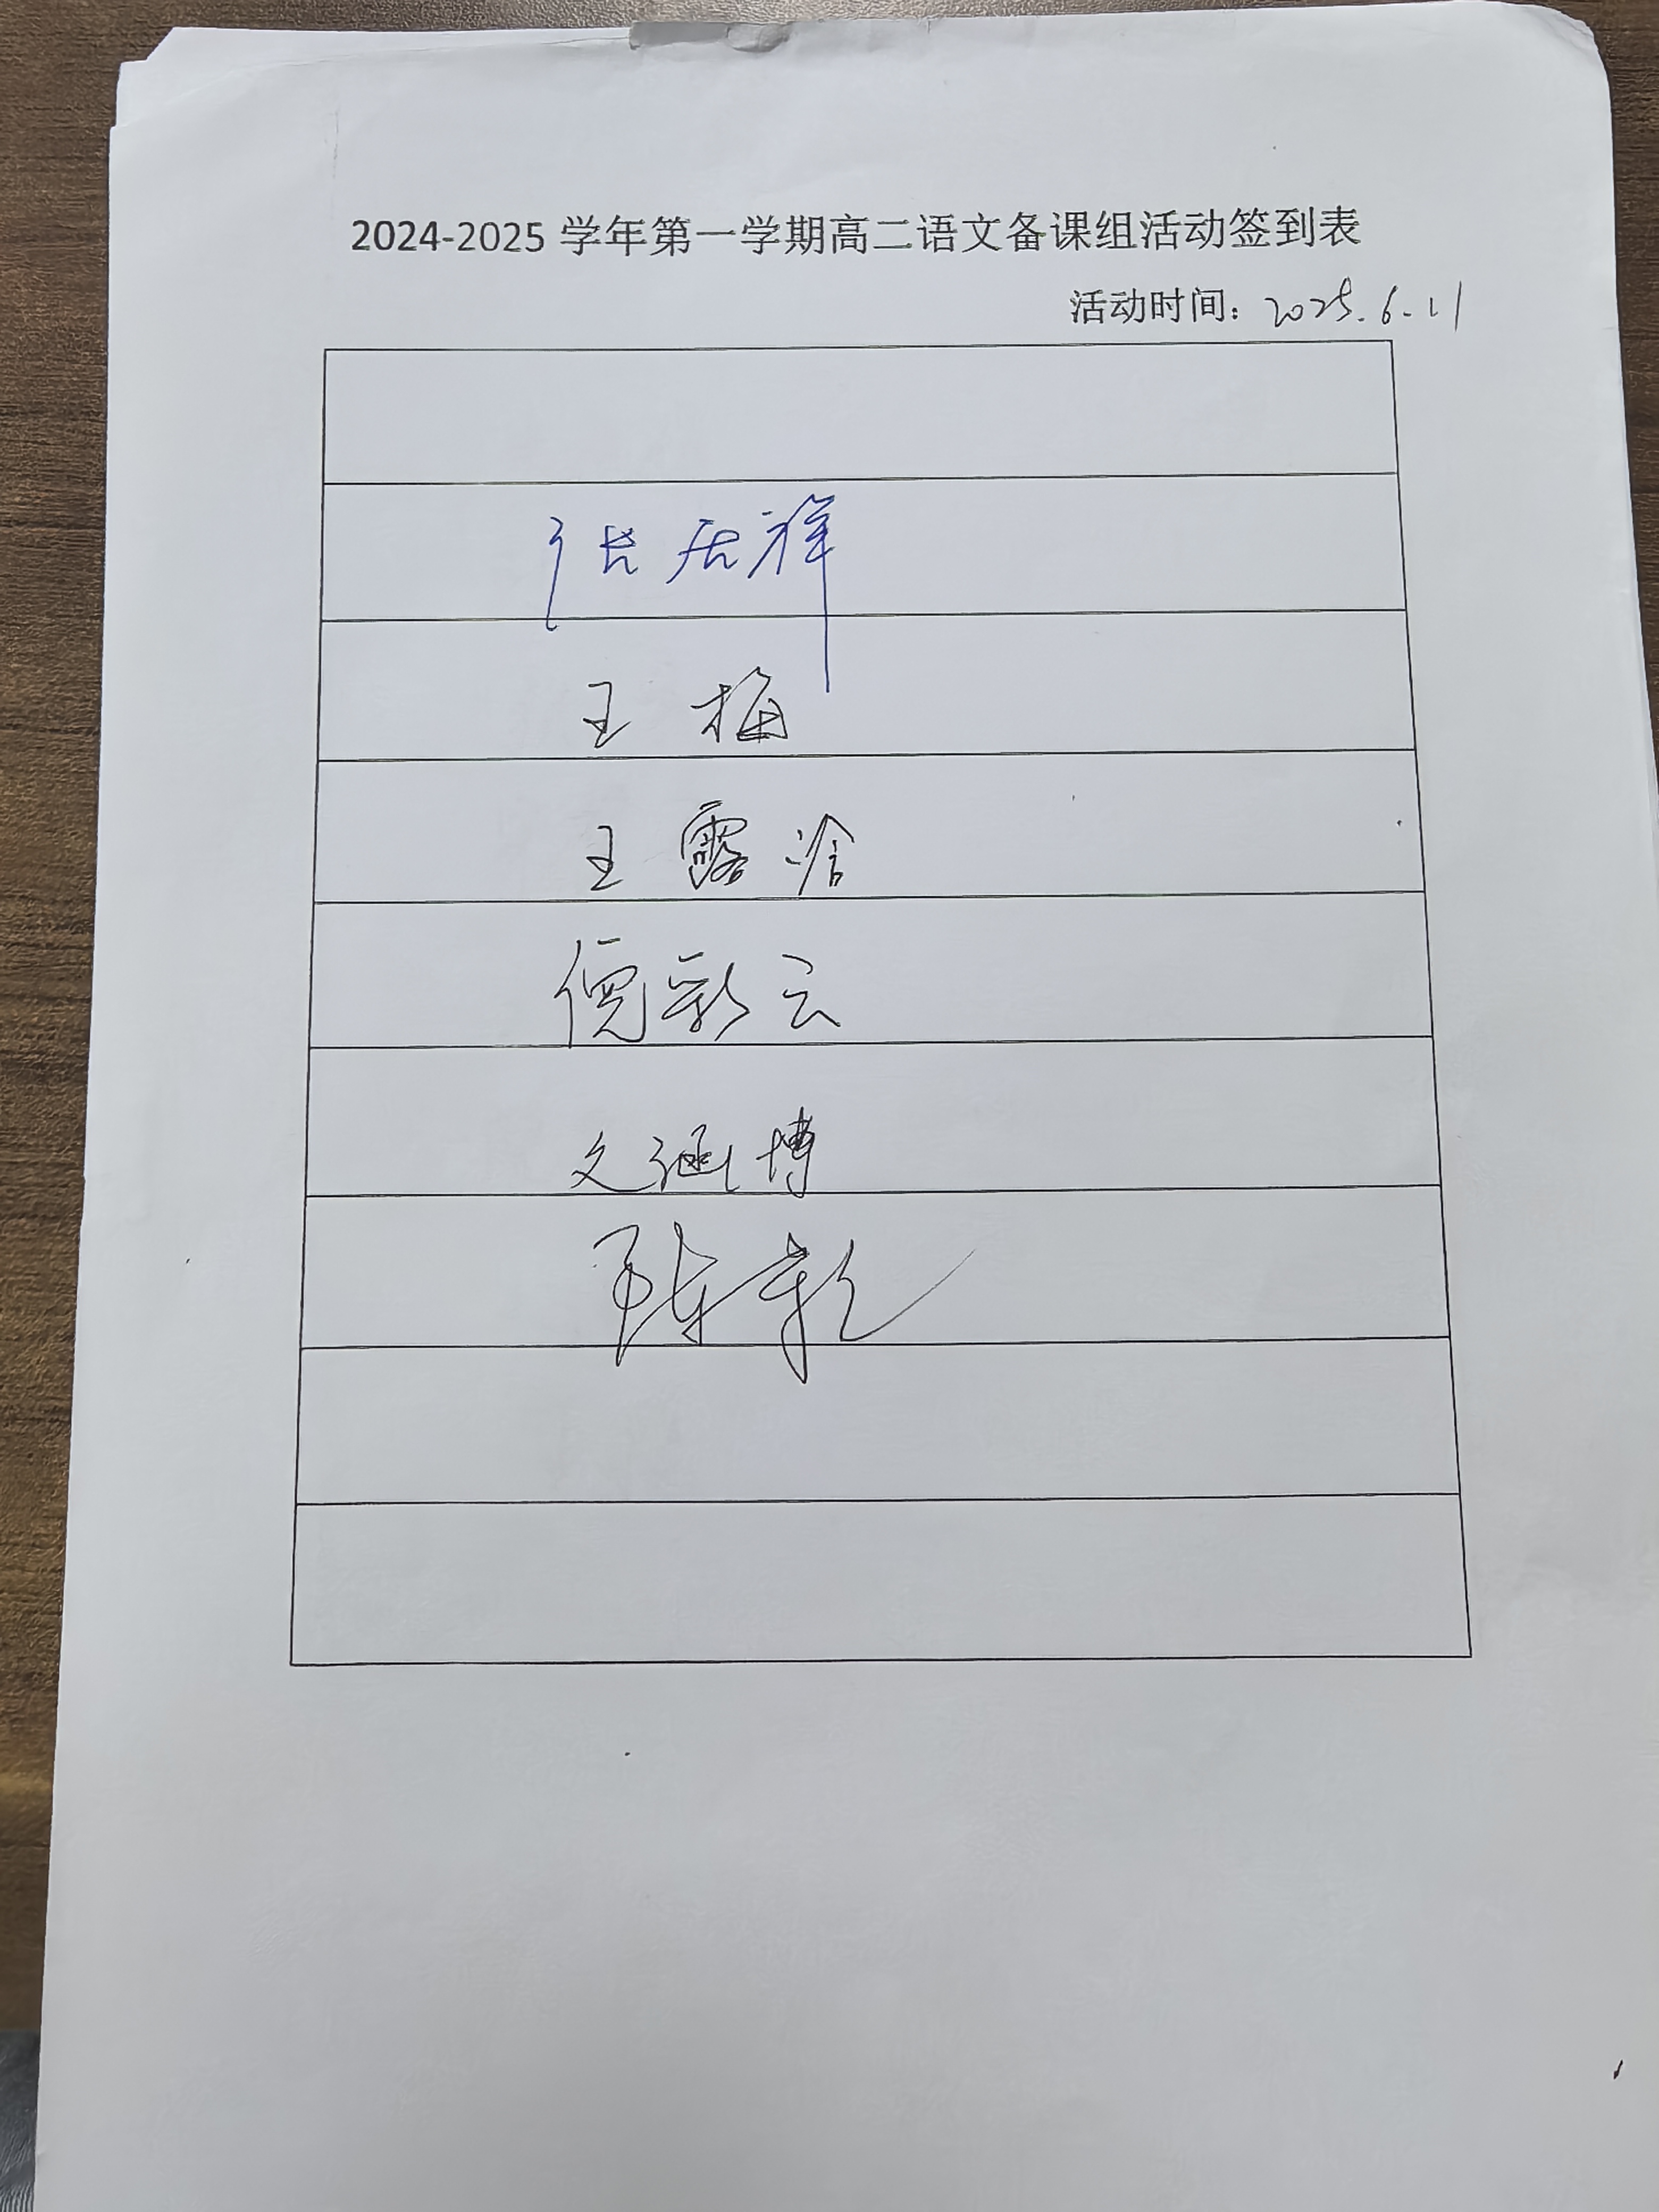 2024-2025 学年第一学期高二语文备课组活动签到表
活动时间：2025.6.11
王梅
王露
倪彩云
文涵博
陈乾